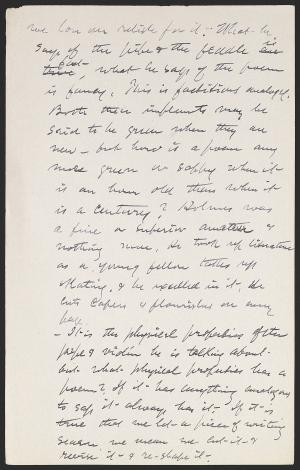 we have our relish for it. What he
says of the pipe & the fiddle is
fact
true, what he says of the poem
is fancy. This is factitious analogy.
Both these implements may be
said to be green when they are
new – but how is a poem any
more green or sappy when it
is an hour old than when it
is a century? Holmes was
a fine or superior amateur &
nothing more. He took up literature
as a young fellow takes up
skating, & he excelled in it. He
cuts capers & flourishes on every
page.
– It is the physical properties of the
pipe & violin he is talking about –
but what physical properties has a
poem? If it has anything analogous
to sap, it always has it. If it is
true that we let a piece of writing
season we mean we let it &
revise it & re-shape it.